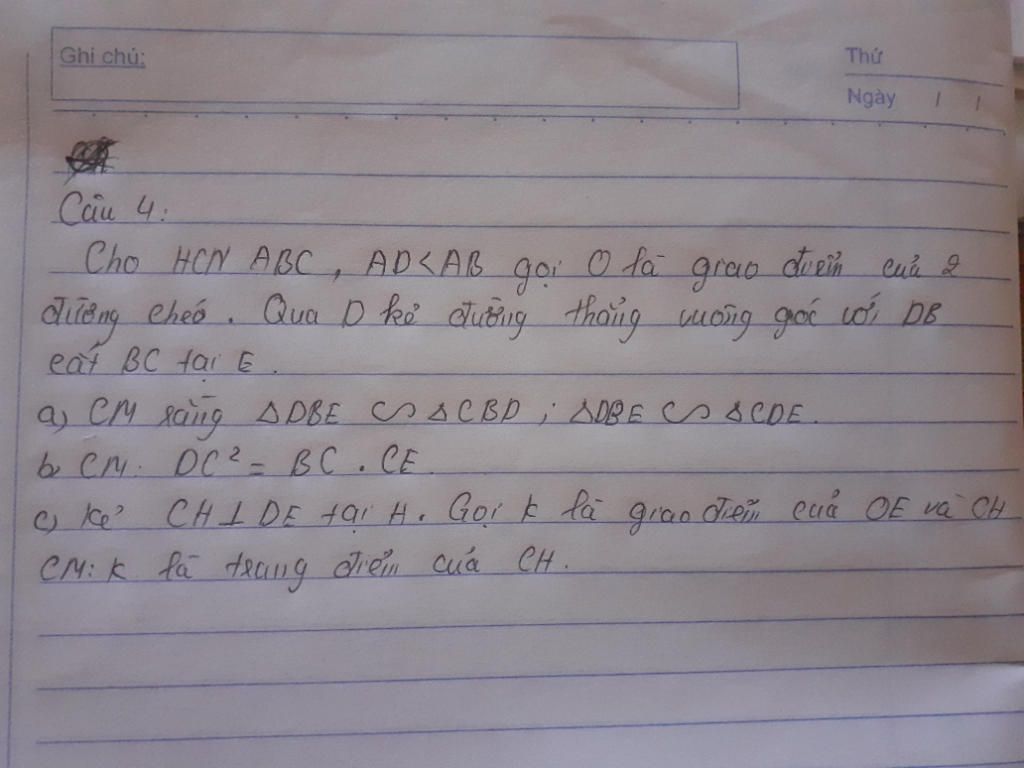 Ghi chú:
Thứ
Ngày / /
Câu 4:
Cho HCN ABC, AD<AB gọi O là giao điểm của 2
đường chéo. Qua D kẻ đường thẳng vuông góc với DB
cắt BC tại E.
a, CM rằng ΔDBE ∽ ΔCBD ; ΔDBE ∽ ΔCDE.
b, CM: DC² = BC . CE.
c, Kẻ CH⊥DE tại H. Gọi K là giao điểm của OE và CH
CM: K là trung điểm của CH.